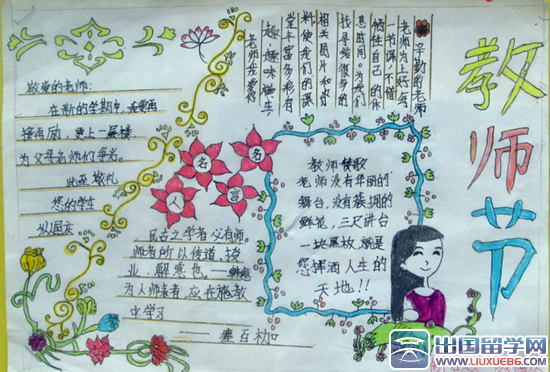 教师节
辛勤的老师
老师为上好每
一节课不惜
牺牲自己的休
息时间。为我们
找寻给很多的
相关图片和资
料使我们的课
堂丰富多彩有
趣,趣味横生
老师我爱你
敬爱的老师:
在新的学期中,我要再
接再励,更上一层楼
为父母老师们争光。
此致敬礼
您的学生
名人名言
一、古之学者必有师。
师者所以传道、授
业、解惑也,
为人师表者,应在施教
中学习
教师赞歌
老师没有华丽的
舞台,没有簇拥的
鲜花,三尺讲台
一块黑板就是
您挥洒人生的
天地!!
出国留学网
www.liuxue86.com